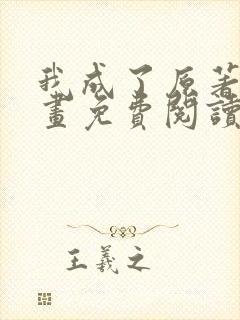 我成了原著
畫免費閱讀
王羲之